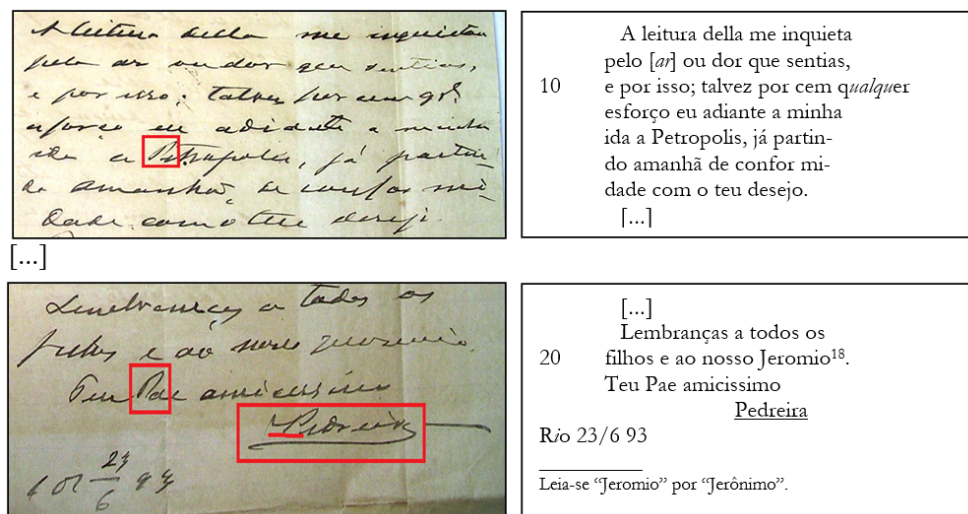 A leitura della me inquieta
pelo ar ou dor que sentias,
e por isso; talvez por cem
esforço eu adiante a minha
ida a Petropolis, já partin-
do amanhã, de confor mi-
dade com o teu desejo.
A leitura della me inquieta
pelo [ar] ou dor que sentias,
10 e por isso; talvez por cem qualquer
esforço eu adiante a minha
ida a Petropolis, já partin-
do amanhã de confor mi-
dade com o teu desejo.
[...]
[...]
Lembranças a todos os
filhos e ao nosso Jeromio.
Teu Pae amicissimo
Pedreira
23/6 93
[...]
Lembranças a todos os
20 filhos e ao nosso Jeromio18.
Teu Pae amicissimo
Pedreira
Rio 23/6 93
Leia-se “Jeromio” por “Jerônimo”.